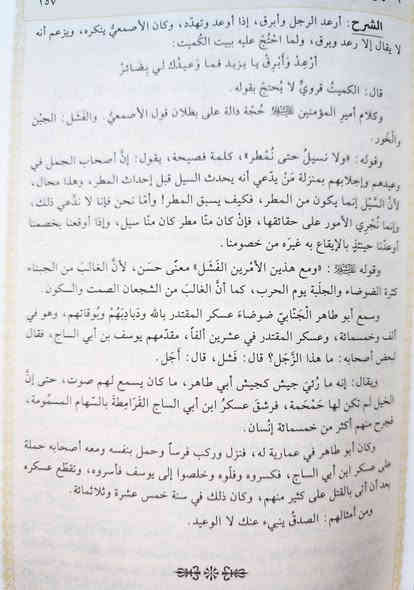 ١٥٧
الشرح: أرعد الرجل وأبرق، إذا أوعد وتهدّد، وكان الأصمعيُّ ينكره، ويزعم أنه
لا يقال إلا رعد وبرق، ولما احتُجّ عليه ببيت الكُميت:
أرْعِدْ وَأَبْرِقْ يا يزيد فما وَعيدُك لي بِضَائرْ
قال: الكميتُ قرويٌّ لا يُحتجّ بقوله.
وكلام أمير المؤمنين حُجّة دالة على بطلان قول الأصمعيّ. والفَشَل: الجبْن
والخَور.
وقوله: «ولا نسيلُ حتى نُمْطر»، كلمة فصيحة، يقول: إنّ أصحاب الجمل في
وعيدهم وإجلابهم بمنزلة مَنْ يدّعي أنه يحدث السيل قبل إحداث المطر، وهذا محال،
لأنّ السَّيْل إنما يكون من المطر، فكيف يسبق المطر! وأمّا نحن فإنا لا ندَّعي ذلك،
وإنما نُجْري الأمور على حقائقها، فإنْ كان منّا مطر كان منّا سيل، وإذا أوقعنا بخصمنا
أوعَدْنا حينئذٍ بالإيقاع به غيرَه من خصومنا.
وقوله : «ومع هذين الأمْرين الفَشَل» معنًى حسَن، لأنّ الغالبَ من الجبناء
كثرة الضوضاء والجلَبة يوم الحرب، كما أنّ الغالبَ من الشجعان الصمت والسكون.
وسمع أبو طاهر الْجَنّابيّ ضوضاءَ عسكر المقتدر بالله ودَبادِبَهُمْ وبُوقاتهم، وهو في
ألف وخمسمائة، وعسكر المقتدر في عشرين ألفاً، مقدّمهم يوسف بن أبي الساج، فقال
لبعض أصحابه: ما هذا الزَّجَل؟ قال: فَشل، قال: أَجَل.
ويقال: إنه ما رُئيَ جيش كجيش أبي طاهر، ما كان يسمع لهم صوت، حتى إنّ
الخيل لم تكن لها حَمْحَمة، فرشقَ عسكرُ ابن أبي الساج القَرَامِطةَ بالسِّهام المسمُومة،
فجرح منهم أكثر من خمسمائة إنْسان.
وكان أبو طاهر في عمارية له، فنزل وركب فرساً وحمل بنفسه ومعه أصحابه حملة
على عسكر ابن أبي الساج، فكسروه وفلّوه وخلصوا إلى يوسف فأسروه، وتقطّع عسكره
بعد أن أتى بالقتل على كثير منهم، وكان ذلك في سنة خمس عشرة وثلاثمائة.
ومن أمثالهم: الصدقُ ينبيء عنك لا الوعيد.